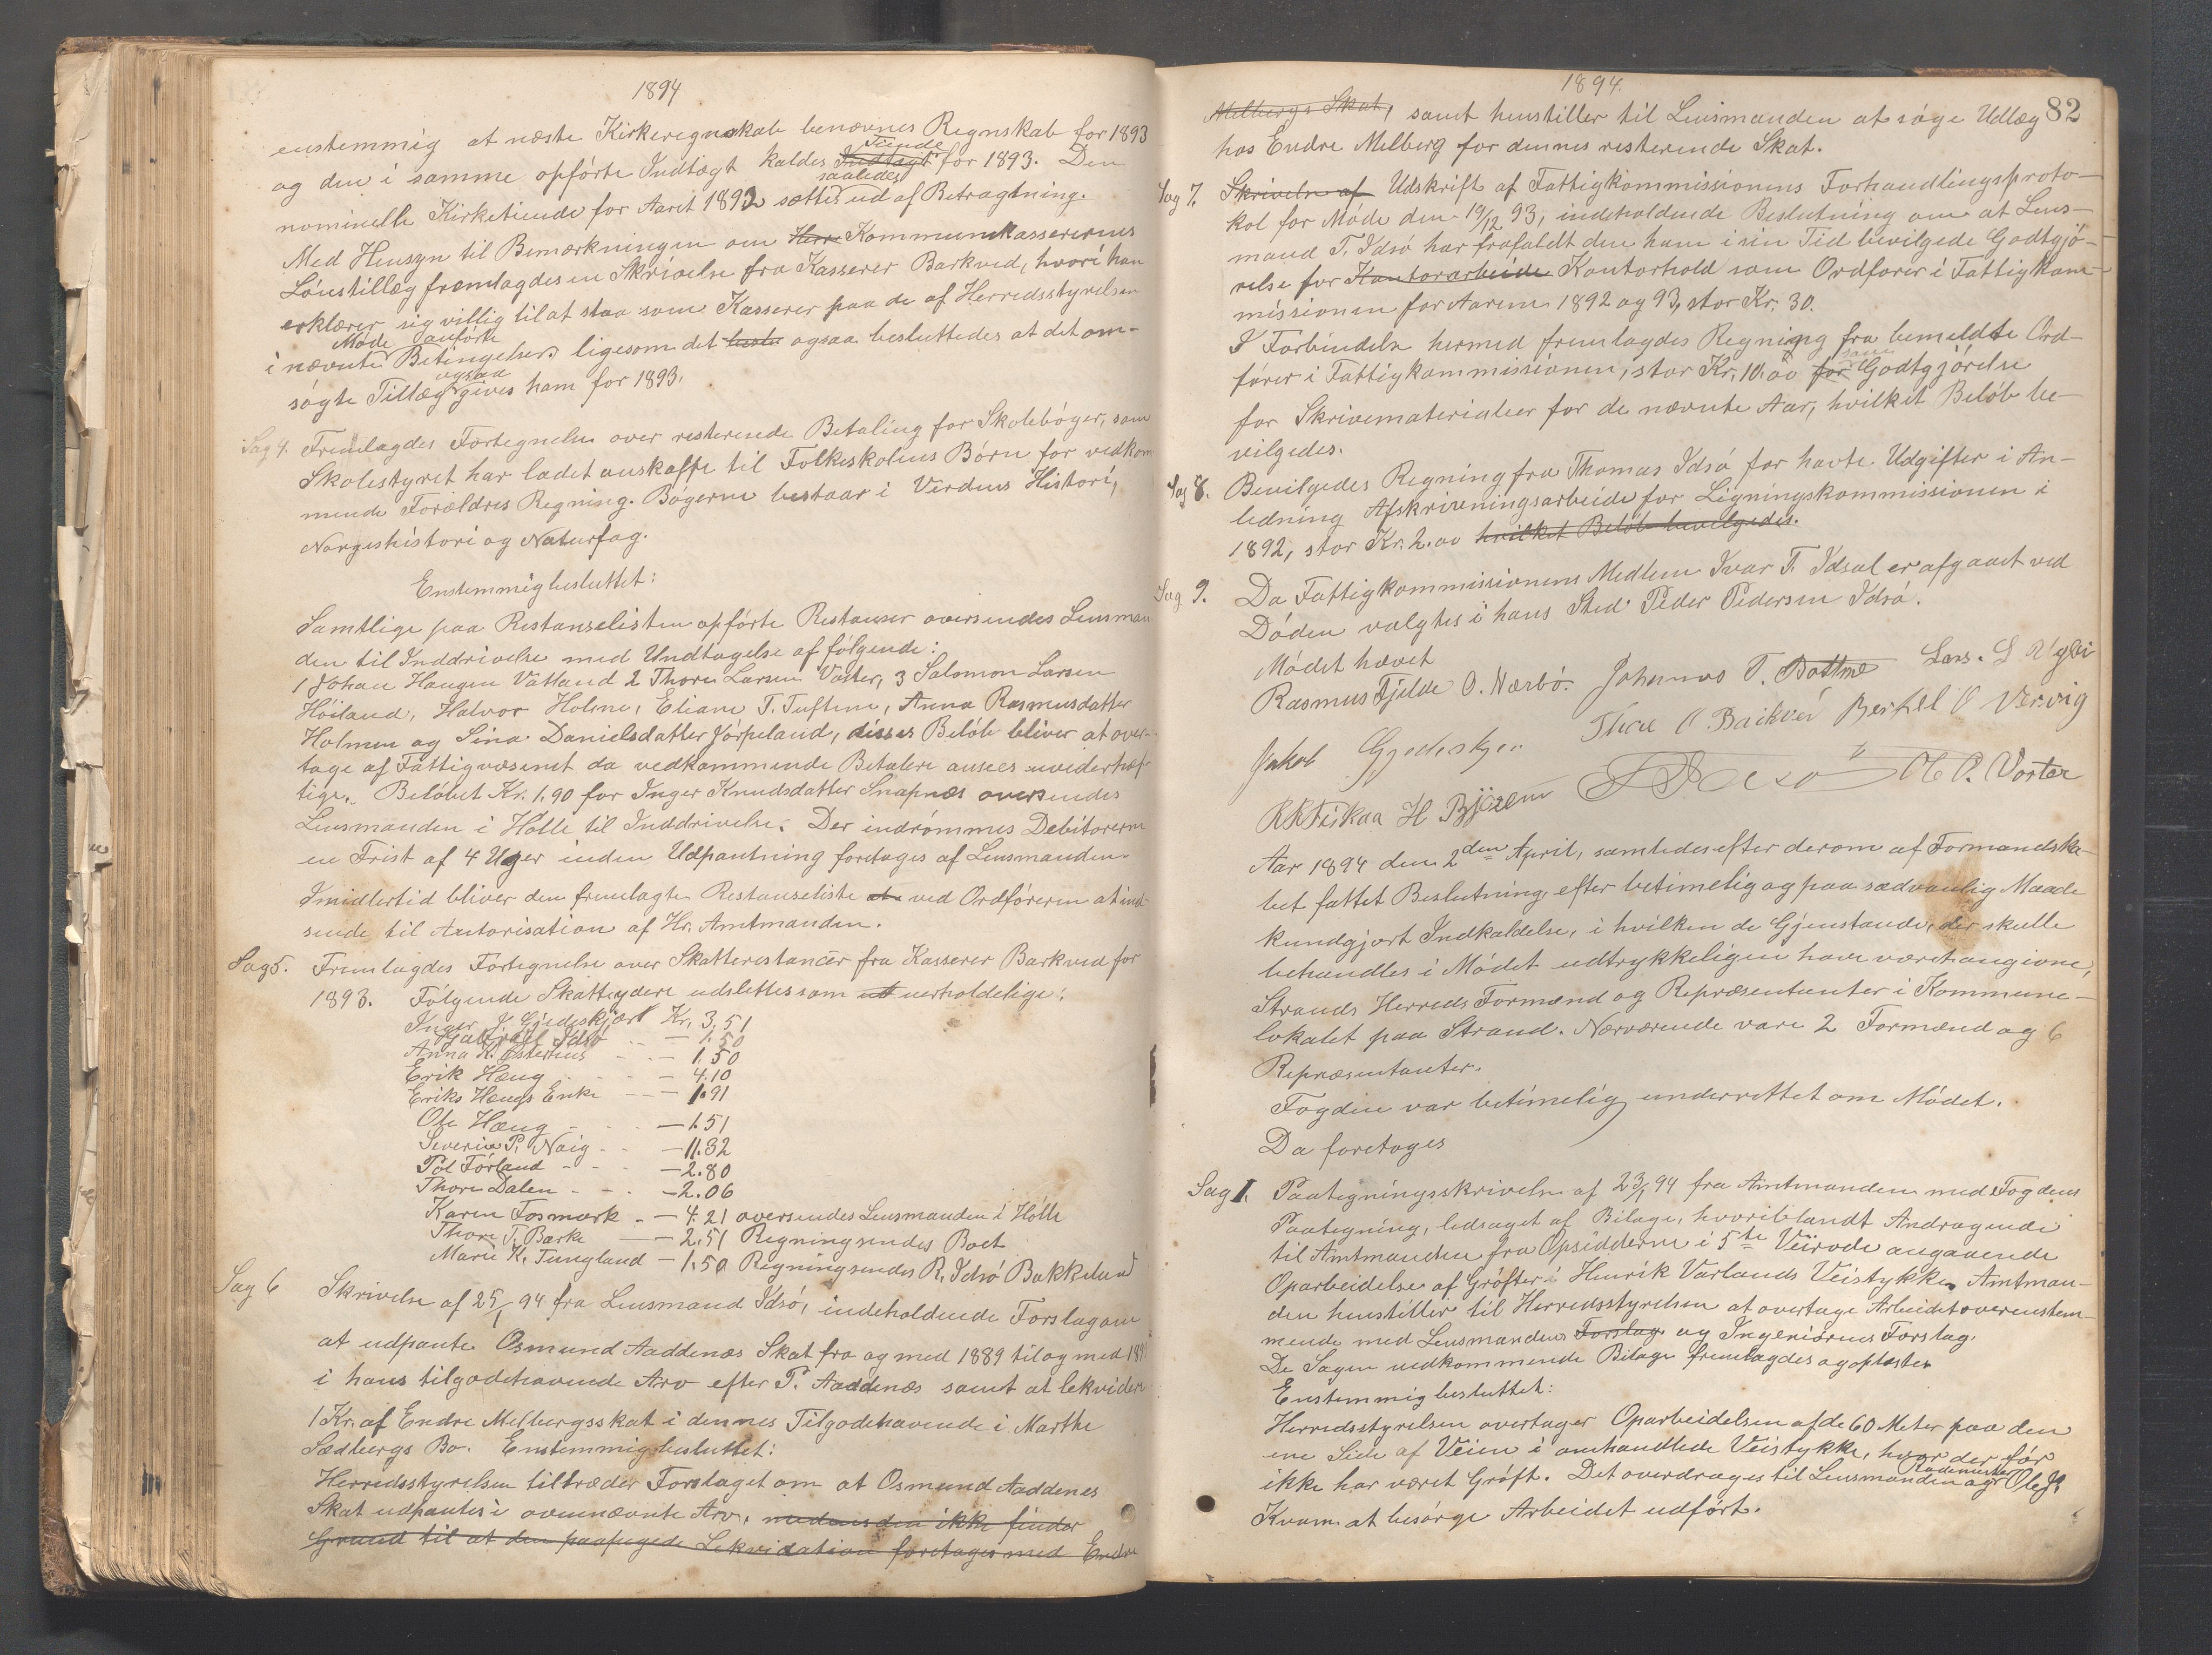 1894
enstemmig at næste Kirkeregnskab benævnes Regnskab for 1893
og den i samme opførte Indtægt kaldes Indtægt Tiende for 1893. Den
nominelle Kirketiende for Aaret 1892 sættes saaledes ud af Betragtning.
Med Hensyn til Bemærkningen om Herr Kommunekassererens
Lønstillæg fremlagdes en Skrivelse fra Kasserer Barkved, hvori han
erklærer sig villig til at staa som Kasserer paa de af Herredsstyrelsen
i nævnte Møde anførte Betingelser, ligesom det beslu ogsaa besluttedes at det om-
søgte Tillæg ogsaa gives ham for 1893.
Sag 4. Fremlagdes Fortegnelse over resterende Betaling for Skolebøger, som
Skolestyret har ladet anskaffe til Folkeskolens Børn for vedkom
mende Forældres Regning. Bøgerne bestaar i Verdens Histori,
Norgeshistori og Naturfag.
Enstemmig besluttet:
Samtlige paa Restanselisten opførte Restanser oversendes Lensman
den til Inddrivelse med Undtagelse af følgende:
1 Johan Haugen Vatland 2 Thore Larsen Vaster, 3 Salomon Larsen
Høiland, Halvor Holme, Eliane T. Tuftene, Anna Rasmusdatter
Holmen og Sina Danielsdatter Jørpeland, disses Beløb bliver at over-
tage af Fattigvæsenet da vedkommende Betalere ansees uvederhæf
tige. Beløbet Kr. 1.90 for Inger Knudsdatter Snapnæs oversendes
Lensmanden i Hølle til Inddrivelse. Der indrømmes Debitorerne
en Frist af 4 Uger inden Udpantning foretages af Lensmanden.
Imidlertid bliver den fremlagte Restanseliste at ved Ordføreren at ind-
sende til Autorisation af Hr. Amtmanden.
Sag 5. Fremlagdes Fortegnelse over Skatterestancer fra Kasserer Barkved for
1893. Følgende Skatteydere udslettes som ut uerholdelige:
Inger J. Gjedeskjær Kr. 3,51
Idsø - - 1.50
Anna K. - - 1.50
Erik Hæng - - 4.10
Eriks Hængs Enke - - 1.91
Ole Hæng - - 1.51
Severin P. Naig - - 11.32
Pol Førland - - 2.80
Thore Dalen - - 2.06
Karen Fosmark - - 4.21 oversendes Lensmanden i Hølle
Thore T. Barke - 2.51 Regning sendes Boet
Marie K. Tungland - 1.50 Regning sendes R. Idsø Bakkelund
Sag 6 Skrivelse af 25/1 94 fra Lensmand Idsø, indeholdende Forslag om
at udpante Osmund Aaddenæs Skat fra og med 1889 til og med 189
i hans tilgodehavende Arv efter P. Aaddenæs samt at lekvidere
1 Kr. af Endre Melbergs skat i dennes Tilgodehavende i Marthe
Sædbergs Bo. Enstemmig besluttet:
Herredsstyrelsen tiltræder Forslaget om at Osmund Aaddenes
Skat udpantes i ovennævnte Arv, medens den ikke finder
Grund til at den paapegede Lekvidation foretages med Endre
1894.
82
Melbergs Skat, samt henstiller til Lensmanden at søge Udlæg
hos Endre Melberg for dennes resterende Skat.
Sag 7. Skrivelse af Udskrift af Fattigkommissionens Forhandlingsproto-
kol for Møde den 19/12 93, indeholdende Beslutning om at Lens-
mand T. Idsø har frafaldt den ham i sin Tid bevilgede Godtgjø-
relse for Kontorarbeide Kontorhold som Ordfører i Fattigkom-
missionen for Aarene 1892 og 93, stor Kr. 30.
I Forbindelse hermed fremlagdes Regning fra bemeldte Ord-
fører i Fattigkommissionen, stor Kr. 10.00 for som Godtgjørelse
for Skrivematerialier for de nævnte Aar, hvilket Beløb be-
vilgedes.
Sag 8. Bevilgedes Regning fra Thomas Idsø for havte Udgifter i An-
ledning Afskrivningsarbeide for Ligningskommissionen i
1892, stor Kr. 2.00 hvilket Beløb bevilgedes.
Sag 9. Da Fattigkommissionens Medlem Ivar T. Idsal er afgaaet ved
Døden valgtes i hans Sted Peder Pedersen Idsø.
Mødet hævet
Rasmus Fjelde O. Nærbø. Johannes T. Lars. L
Jakob Gjedeskjær Thore O Barkved Bertel O Vervig
H Bjørem Ole P. Vorter
Aar 1894 den 2den April, samledes efter derom af Formandska-
bet fattet Beslutning, efter betimelig og paa sædvanlig Maade
kundgjort Indkaldelse, i hvilken de Gjenstande, der skulle
behandles i Mødet udtrykkeligen have været angivne,
Strands Herreds Formænd og Repræsentanter i Kommune-
lokalet paa Strand. Nærværende vare 2 Formænd og 6
Repræsentanter.
Fogden var betimelig underrettet om Mødet.
Da foretoges
Sag 1. Paategningsskrivelse af 23/1 94 fra Amtmanden med Fogdens
Paategning, ledsaget af Bilage, hvoriblandt Andragende
til Amtmanden fra Opsidderne i 5te Veirode angaaende
Oparbeidelse af Grøfter i Henrik Varlands Veistykke. Amtman-
den henstiller til Herredsstyrelsen at overtage Arbeidet overenstem-
mende med Lensmandens Forslag og Ingeniørens Forslag.
De Sagen vedkommende Bilage fremlagdes og oplæstes
Enstemmig besluttet:
Herredsstyrelsen overtager Oparbeidelsen af de 60 Meter paa den
ene Side af Veien i omhandlede Veistykke, hvor der før
ikke har været Grøft. Det overdrages til Lensmanden og Rodemester Ole J.
Kvam at besørge Arbeidet udført.